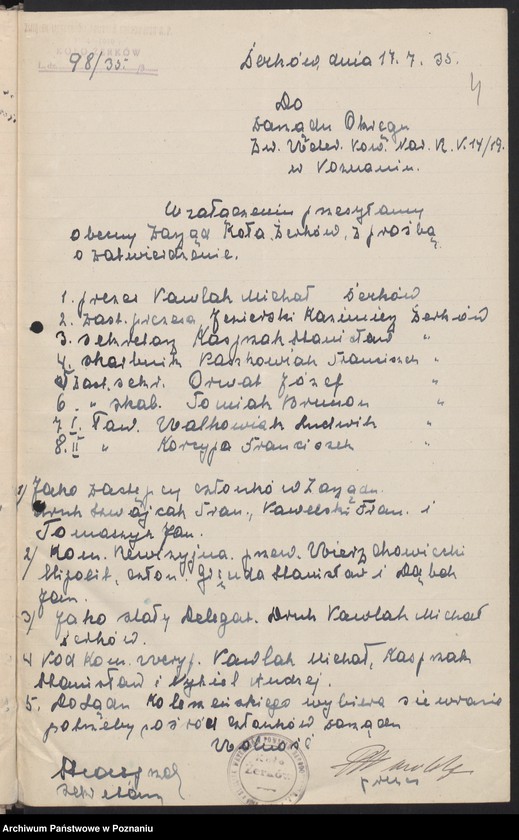 KOŁO ŻERKÓW
L. dz. 98/35.
Żerków, dnia 17. 7. 35.
4
Do
Zarządu Okręgu
Zw. Weter. Pow. Nar. R. P. 14/19.
w Poznaniu.
W załączeniu przesyłamy
obecny Zarząd Koła Żerków, z prośbą
o zatwierdzenie.
1. prezes Pawlak Michał Żerków
2. Zast. prezesa Jezierski Kazimierz Żerków
3. sekretarz Kasprzak Stanisław "
4. skarbnik Paszkowiak Franciszek "
5 Zast. sekr. Orwat Józef "
6. " skab. Tomiak Brunon "
7 I. Ław. Walkowiak Ludwik "
8. II " Korzyja Franciszek "
1/ Jako zastępcy członków Zarządu.
druh Szwajcak Fran., Pawelski Fran. i
Tomaszyk Jan.
2/ Kom. Rewizyjna. przew. Wierzchowiecki
Hipolit, człon. Gręda Stanisław i
Jan.
3/ Jako stały Delegat. Druh Pawlak Michał
Żerków.
4 Pod Kom. weryf. Pawlak Michał, Kasprzak
Stanisław i Andrzej.
5. Do Sądu Koleżeńskiego wybiera się w razie
potrzeby pośród członków zarządu
Wolność
Koło
Żerków
sekretarz
prezes
Archiwum Państwowe w Poznaniu